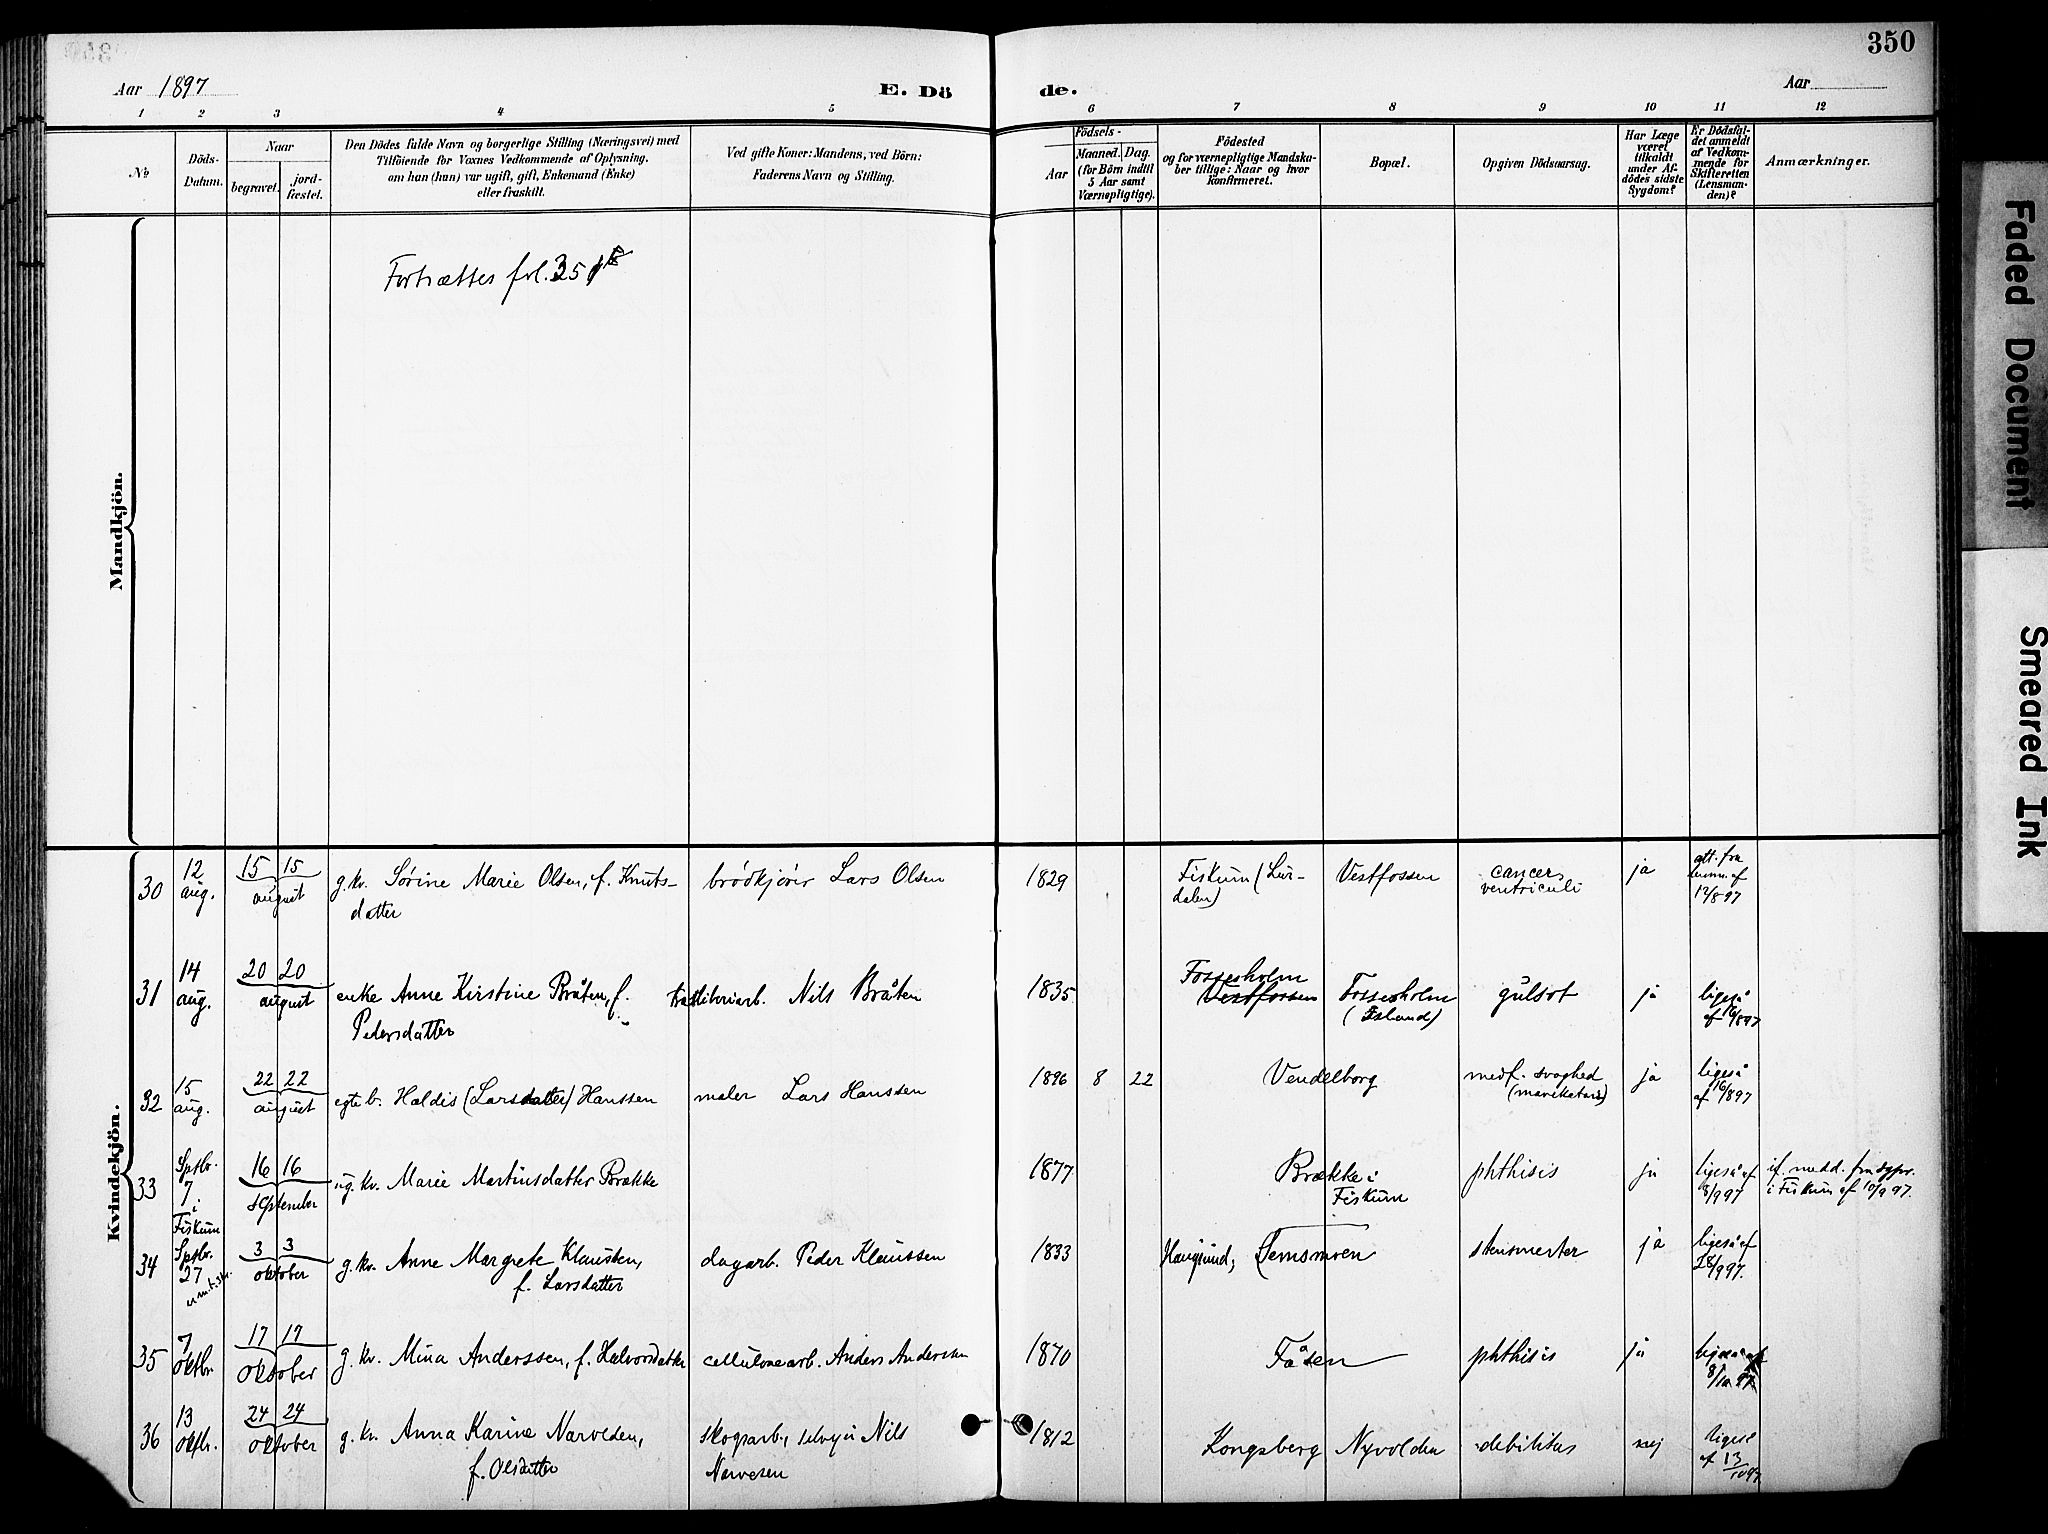 350
Aar 1897
E. Dö de.
Aar
1 2 3 4 5 6 7 8 9 10 11 12
No
Döds-
Datum.
Naar
begravet.
jord-
fæstet.
Den Dödes fulde Navn og borgerlige Stilling (Næringsvei) med
Tilföiende for Voxnes Vedkommende af Oplysning.
om han (hun) var ugift, gift, Enkemand (Enke)
eller fraskilt.
Ved gifte Koner: Mandens, ved Börn:
Faderens Navn og Stilling.
Födsels-
Aar
Maaned. Dag.
(for Börn indtil
5 Aar samt
Værnepligtige).
Födested
og for værnepligtige Mandska-
ber tillige: Naar og hvor
konfirmeret.
Bopæl.
Opgiven Dödsaarsag.
Har Læge
været
tilkaldt
under Af-
dödes sidste
Sygdom?
Er Dödsfal-
det anmeldt
af Vedkom-
mende for
Skifteretten
(Lensman-
den)?
Anmærkninger.
Mandkjön.
Fortsættes fol. 351
Kvindekjön.
30 12 aug. 15 15 august g. kv. Sørine Marie Olsen, f. Knuts-
datter
brødkjører Lars Olsen 1829 Fiskum (Lur-
dalen)
Vestfossen cancer
ventriculi
ja att. fra
lensm. af
13/8 97
31 14 aug. 20 20 august enke Anne Kirstine Bråten, f.
Pedersdatter
Nils Bråten 1835 Fossesholm
Vestfossen
Fossesholm
(Island)
gulsot ja ligeså
af 16/8 97
32 15 aug. 22 22 august egte b. Haldis (Larsdatter) Hanssen maler Lars Hanssen 1896 8 22 Vendelborg medf. svaghed
ja ligeså
af 16/8 97
33 Sptbr. 7 i Fiskum 16 16 september ug. kv. Marie Martinsdatter Brække 1877 Brække i
Fiskum
phthisis ja ligeså af
8/9 97
if. medd. fra sgpr.
i Fiskum af 10/9 97.
34 Sptbr. 27 3 3 oktober g. kv. Anne Margrete Klaussen,
f. Larsdatter
dagarb. Peder Klaussen 1833 Haugsund; Temsmoen stensmerter ja ligeså af
28/9 97.
35 7 oktbr 17 17 oktober g. kv. Mina Anderssen, f. Halvorsdatter cellulosearb. Anders Anderssen 1870 Fåsen phthisis ja ligeså af
8/10 97
36 13 oktbr. 24 24 oktober g. kv. Anna Karine Narvesen,
f. Olsdatter
skogsarb., selvejer Nils
Narvesen
1812 Kongsberg Nyvolden debilitas nej ligeså
af 13/10 97
Faded Document
Smeared Ink